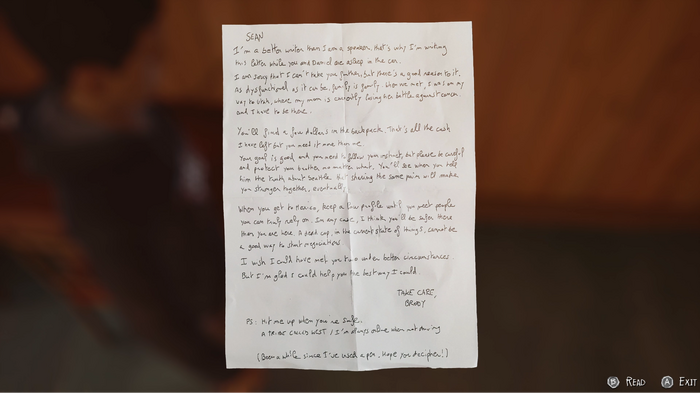 SEAN
I'm a better writer than I am a speaker, that's why I'm writing
this letter while you and Daniel are asleep in the car.
I am sorry that I can't take you further, but there's a good reason to it.
As dysfunctional as it can be, family is family. When we met, I was on my
way to Utah, where my mom is currently losing her battle against cancer.
And I have to be there.
You'll find a few dollars in the backpack. That's all the cash
I have left but you need it more than me.
Your goal is good and you need to follow your instinct, but please be careful
and protect your brother no matter what. You'll see when you tell
him the truth about Seattle that sharing the same pain will make
you stronger together, eventually.
When you get to Mexico, keep a low profile until you meet people
you can truly rely on. In any case, I think you'll be safer there
than you are here. A dead cop, in the current state of things, cannot be
a good way to start negotiations.
I wish I could have met you two under better circumstances
But I'm glad I could help you the best way I could.
TAKE CARE,
BRODY
PS: Hit me up when you are safe.
A TRIBE CALLED WEST / I'm always online when not driving
(Been a while since I've used a pen, hope you decipher!)
B READ A EXIT